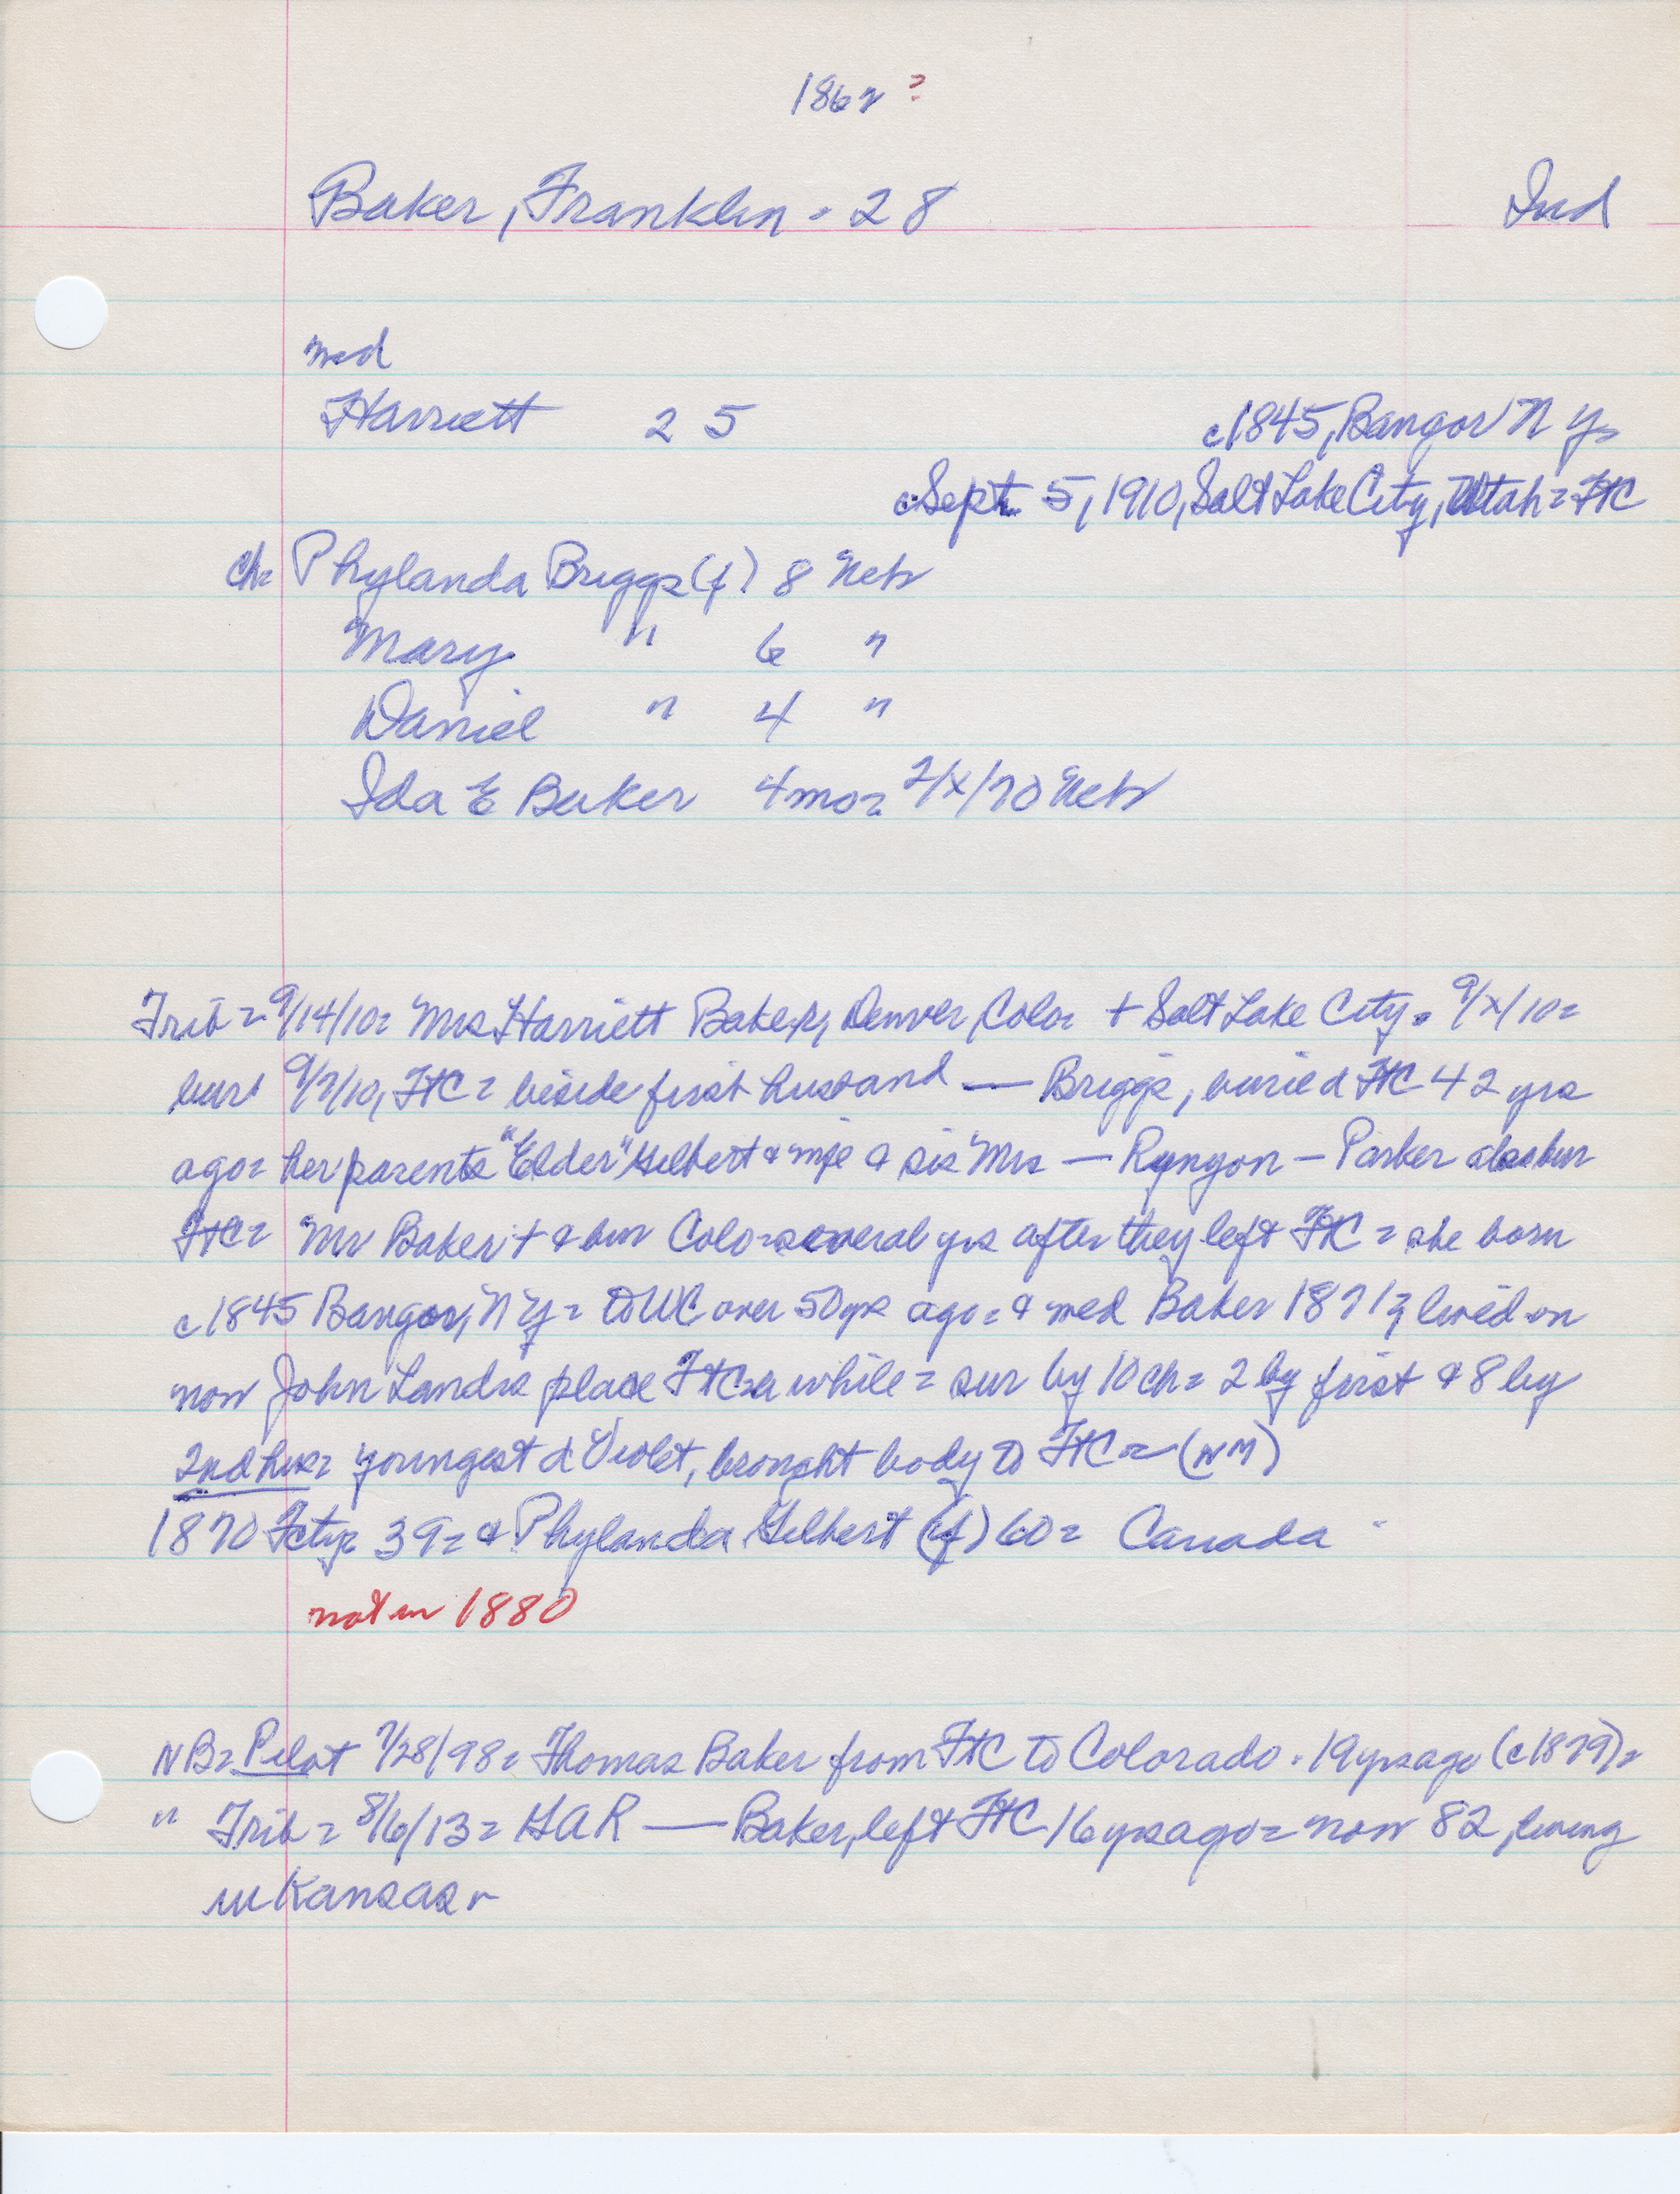 1862 ?
Baker, Franklin - 28 Ind
md
Harriett 25 c1845, Bangor N Y=
Sept 5, 1910, Salt Lake City, Utah = FtC
ch= Phylanda Briggs (f) 8 Neb
Mary " 6 "
Daniel " 4 "
Ida E Baker 4mo= 2/x/70 Neb
Trib = 9/14/10= Mrs Harriett Baker, Denver, Color + Salt Lake City = 9/x/10=
buri 9/7/10, FtC = beside first husband — Briggs, buried FtC 42 yrs
ago= her parents "Elder" Gilbert & wife & sis Mrs — Runyon - Parker also bur
FtC= Mr Baker + & bur Colo= several yrs after they left FtC = she born
c1845 Bangor, N Y = to WC over 50 yrs ago= & med Baker 1871= lived on
now John Landis place FtC a while = sur by 10 ch= 2 by first & 8 by
2nd hus= youngest d Violet, brought body to FtC = (NM)
1870 Fcty= 39= & Phylanda Gilbert (f) 60= Canada
not in 1880
NB= Pilot 7/28/98= Thomas Baker from FtC to Colorado - 19 yrs ago (c1879)=
" Trib = 8/6/13= GAR — Baker, left FtC 16 yrs ago= now 82, living
in Kansas